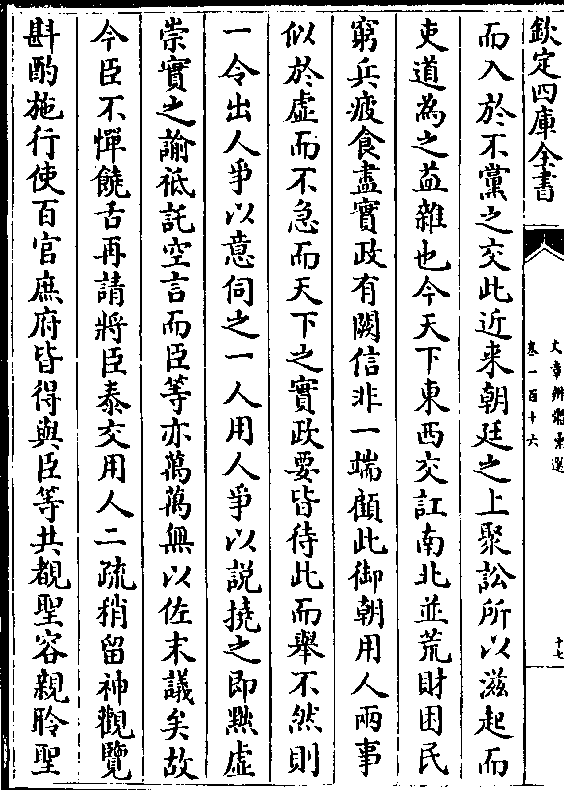 欽定四庫全書
文章辨體彙選
卷一百十六
十七
而入於不黨之交此近来朝廷之上聚訟所以滋起而
吏道為之益雜也今天下東西交訌南北並荒財困民
窮兵疲食盡實政有闕信非一端顧此御朝用人兩事
似於虛而不急而天下之實政要皆待此而舉不然則
一令出人爭以意伺之一人用人爭以説撓之即㸃虛
崇實之諭祗託空言而臣等亦萬萬無以佐末議矣故
今臣不憚饒舌再請將臣泰交用人二疏稍留神觀覽
斟酌施行使百官庶府皆得與臣等共覩聖容親聆聖